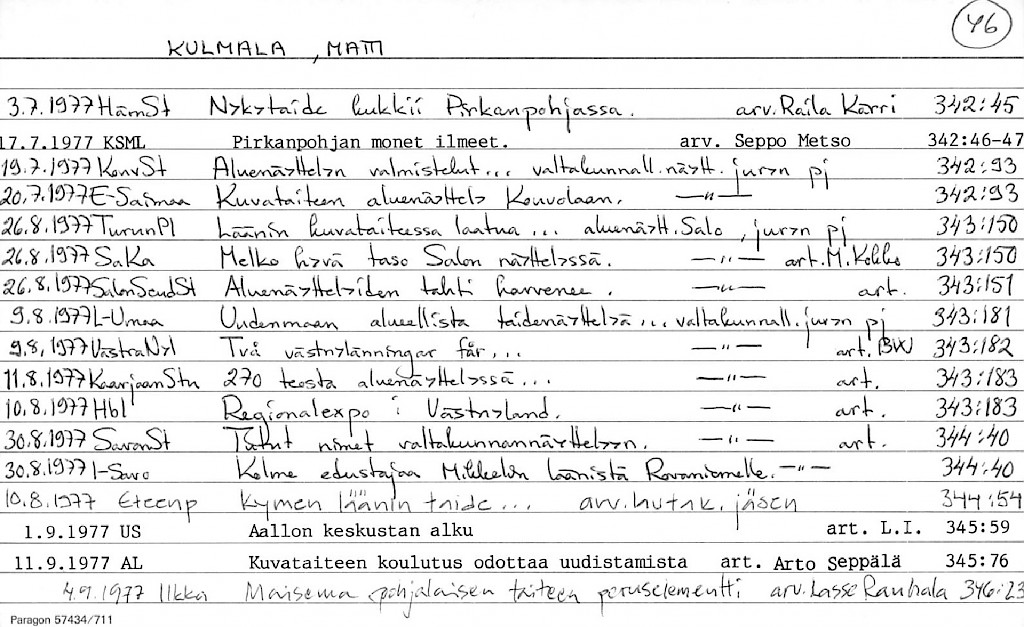 46
KULMALA, MATTI
3.7.1977 HämSt Nykytaide kukkii Pirkanpohjassa. arv. Raila Kärri 342:45
17.7.1977 KSML Pirkanpohjan monet ilmeet. arv. Seppo Metso 342:46-47
19.7.1977 KouvSt Aluenäyttelyn valmistelut... valtakunnall. näytt. juryn pj 342:93
20.7.1977 E-Saimaa Kuvataiteen aluenäyttely Kouvolaan. —"— 342:93
26.8.1977 TurunPl Läänin kuvataiteessa laatua ... aluenäytt. Salo, juryn pj 343:150
26.8.1977 SaKa Melko hyvä taso Salon näyttelyssä. —"— art. M. Kohho 343:150
26.8.1977 SalonSeudSt Aluenäyttelyiden tahti harvenee. —"— art. 343:151
9.8.1977 L-Umaa Uudenmaan alueellista taidenäyttelyä ... valtakunnall. juryn pj 343:181
9.8.1977 VästraNyl Två västnylänningar får... —"— art. BW 343:182
11.8.1977 KarjaanStn 270 teosta aluenäyttelyssä... —"— art. 343:183
10.8.1977 Hbl Regionalexpo i Västnyland. —"— art. 343:183
30.8.1977 SavonSt Tutut nimet valtakunnannäyttelyyn. —"— art. 344:40
30.8.1977 I-Savo Kolme edustajaa Mikkelin läänistä Rovaniemelle. —"— 344:40
10.8.1977 Eteenp Kymen läänin taide... arv. lautak. jäsen 344:54
1.9.1977 US Aallon keskustan alku art. L.I. 345:59
11.9.1977 AL Kuvataiteen koulutus odottaa uudistamista art. Arto Seppälä 345:76
4.9.1977 Ilkka Maisema pohjalaisen taiteen peruselementti arv. Lasse Rauhala 346:23
Paragon 57434/711